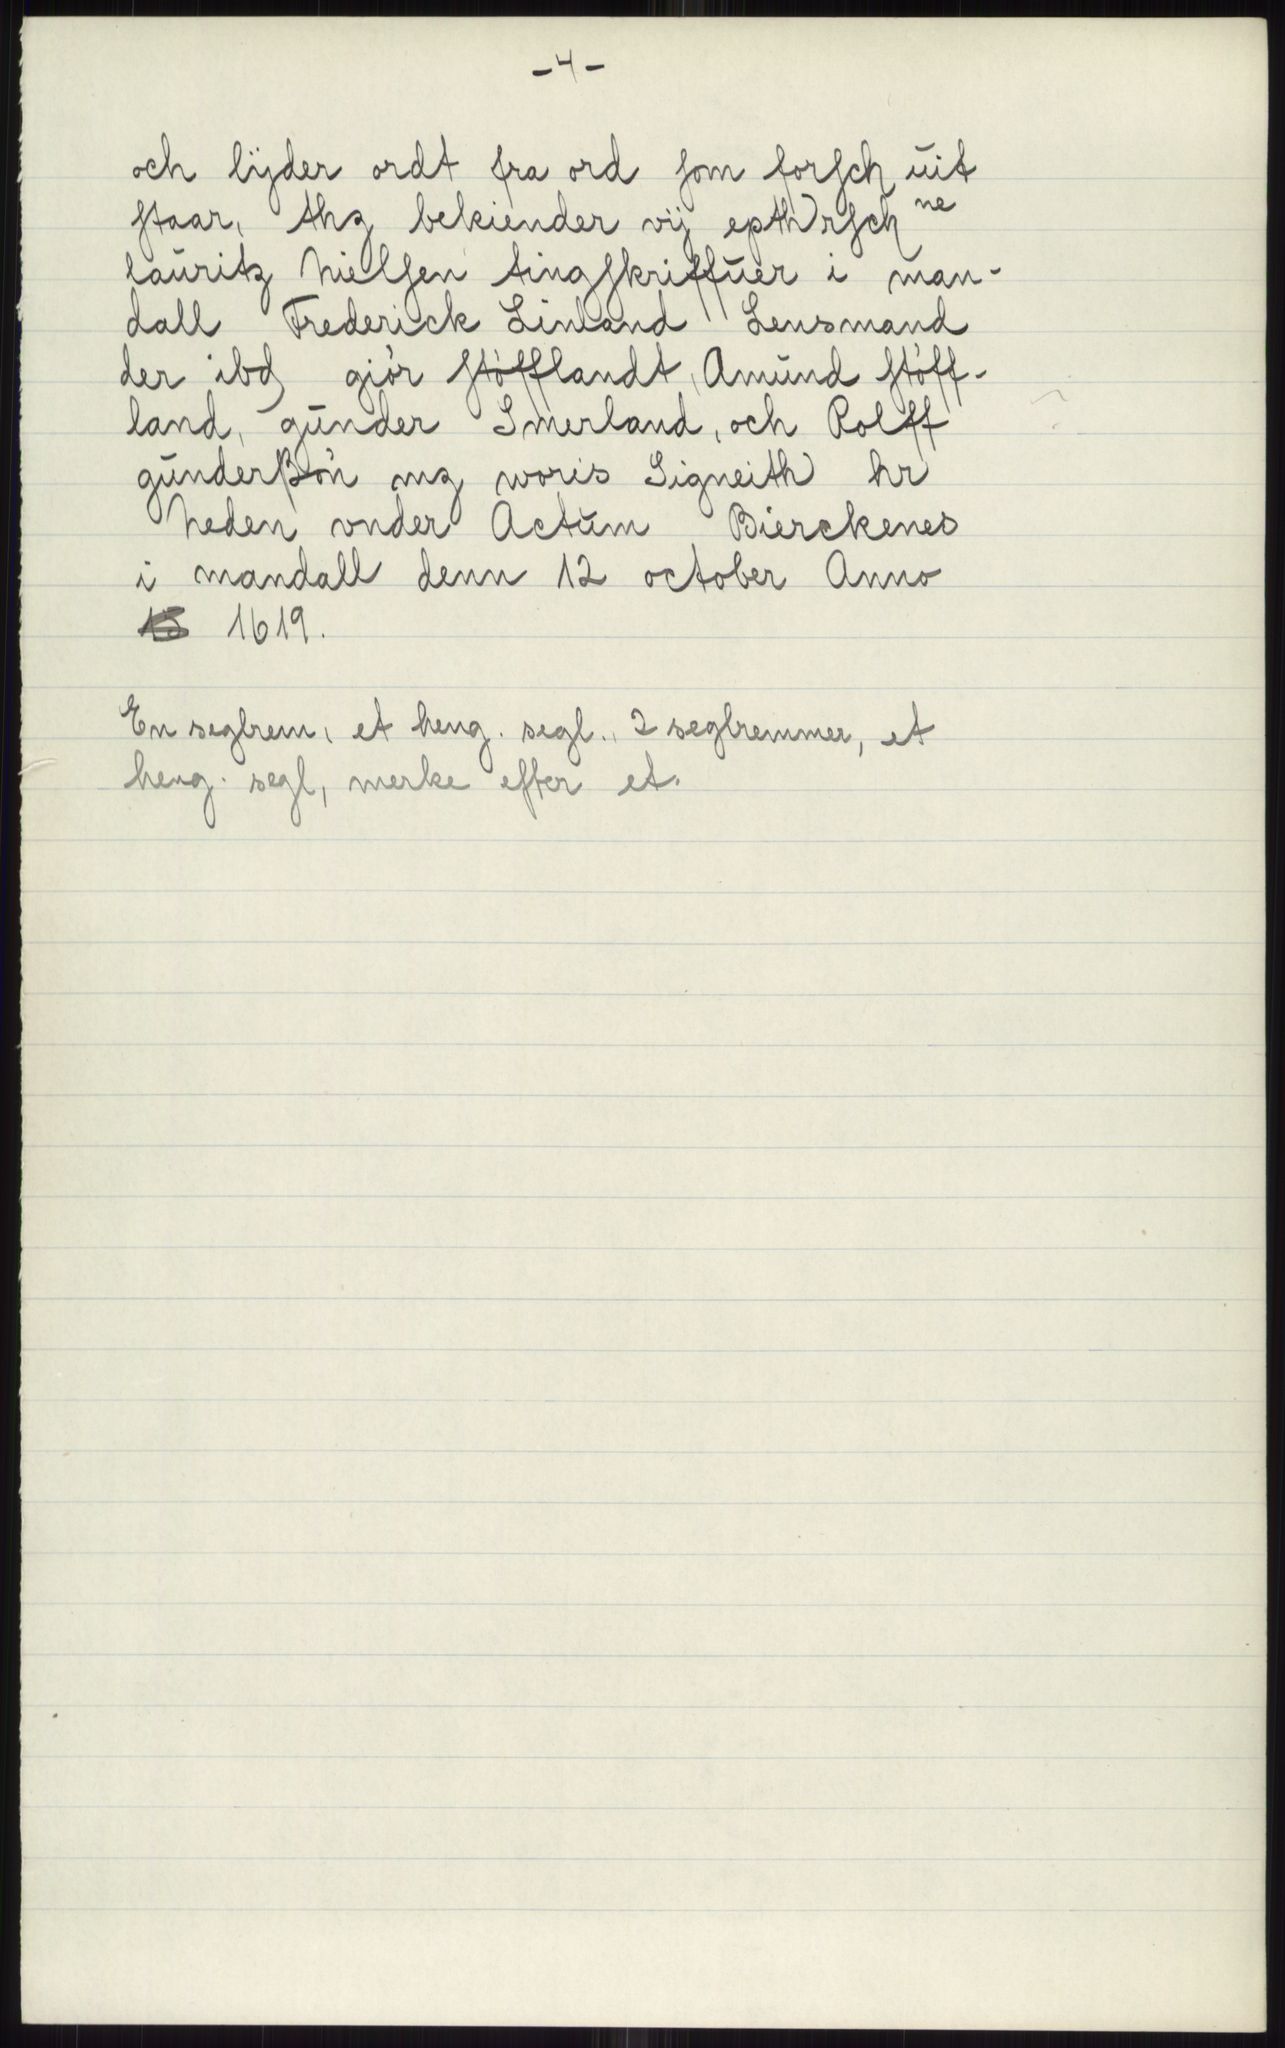 -4-
och lÿder ordt fra ord som forsch uit
staar, thz bekiender vij epthrsch ne
lauritz Nielsen tingskriffuer i man-
dall Frederick Linland Lensmand
der ibd giör Stöfflandt, Amund Stöff-
land, gunder Imerland, och Rolff
gunderßön mz woris Signeith hr
Neden vnder Actum Bierckenes
i mandall denn 12 october Anno
1619.
En seglrem, et heng. segl., 2 seglremmer, et
heng. segl, merke efter et.